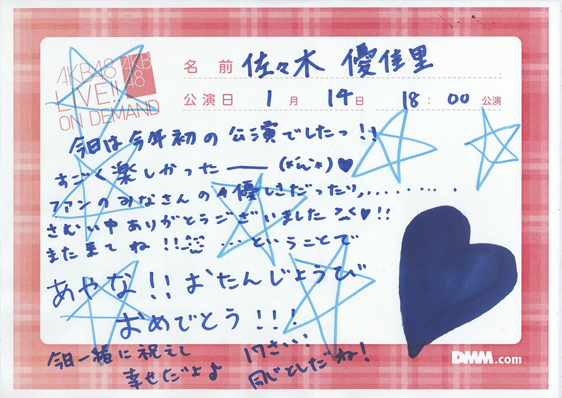 AKB48
LIVE!!
ON DEMAND
AKB
48
名 前 佐々木 優佳里
公演日 1 月 14 日 18 : 00 公演
今日は今年初の公演でしたっ!!
すごく楽しかったーー (*´ω`*)♥
ファンのみなさんの優しさだったり,........
さむい中ありがとうございました ♥!!
また来てね!! …ということで
あやな!! おたんじょうび
おめでとう!!!
今日一緒に祝えて 17さい!
幸せだよ♪ 同じとしだね!
DMM.com